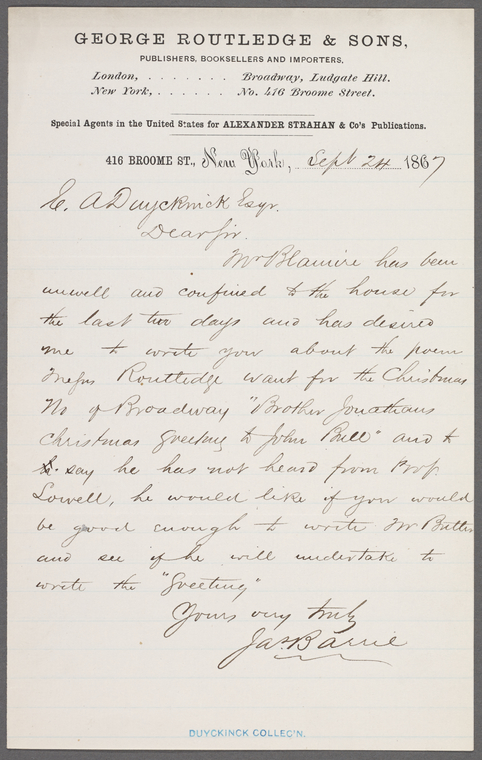 GEORGE ROUTLEDGE & SONS,
PUBLISHERS, BOOKSELLERS AND IMPORTERS,
London, . . . . . . . Broadway, Ludgate Hill.
New York, . . . . . . No. 416 Broome Street.
Special Agents in the United States for ALEXANDER STRAHAN & Co's Publications.
416 BROOME ST., New York, Sept 24 1867
E. A Duyckinck Esqr.
Dear Sir.
Mr Blamire has been
unwell and confined to the house for
the last two days and has desired
me to write you about the poem
Messrs Routledge want for the Christmas
No of Broadway "Brother Jonathans
Christmas greeting to John Bull" and to
say he has not heard from Prof.
Lowell, he would like if you would
be good enough to write Mr Butler
and see if he will undertake to
write the "Greeting"
Yours very truly
Jas. Barrie
DUYCKINCK COLLEC'N.